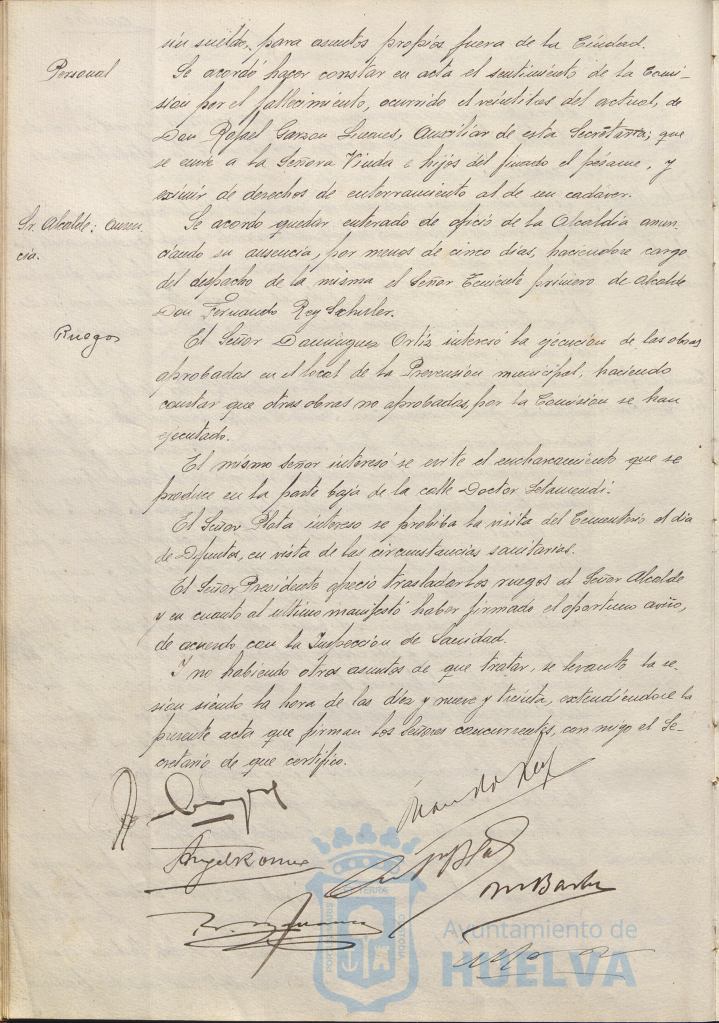 sin sueldo, para asuntos propios fuera de la Ciudad.
Personal
Se acordó hacer constar en acta el sentimiento de la Comi-
sion por el fallecimiento, ocurrido el veintitres del actual, de
Don Rafael Garzon, Auxiliar de esta Secretaria; que
se envie a la Señora Viuda e hijos del finado el pésame, y
eximir de derechos de enterramiento al de un cadaver.
Sr. Alcalde: ausen-
cia.
Se acordo quedar enterado de oficio de la Alcaldia anun-
ciando su ausencia, por menos de cinco dias, haciendose cargo
del despacho de la misma el Señor Teniente primero de Alcalde
Don Fernando Rey
Ruegos
El Señor Dominguez Ortiz interesó la ejecucion de las obras
aprobadas en el local de la Prevension municipal, haciendo
constar que otras obras no aprobadas por la Comision se han
ejecutado.
El mismo señor interesó se evite el encharcamiento que se
produce en la parte baja de la calle Doctor Letamendi.
El Señor Plata intereso se prohiba la visita del Cementerio el dia
de Difuntos, en vista de las circunstancias sanitarias.
El Señor Presidente ofreció trasladar los ruegos al Señor Alcalde
y en cuanto al ultimo manifestó haber firmado el oportuno aviso,
de acuerdo con la Inspeccion de Sanidad.
Y no habiendo otros asuntos de que tratar, se levanto la se-
sion siendo la hora de las diez y nueve y treinta, extendiendose la
presente acta que firman los Señores concurrentes, con migo el Se-
cretario de que certifico.
Ayuntamiento de
HUELVA